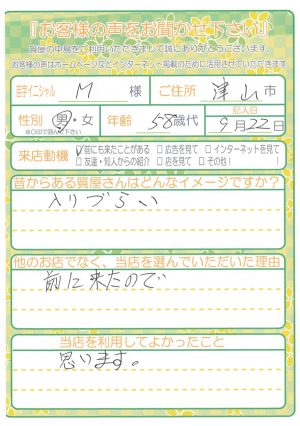 『お客様の声をお聞かせ下さい』
質屋の中島をご利用いただきまして誠にありがとうございます。
お客様の声はホームページなどインターネット掲載のために活用させていただきます。
苗字イニシャル M 様 ご住所 津山市
性別 男・女 年齢 58歳代 記入日 9月22日
※○印で囲んで下さい
来店動機 ☑前にも来たことがある □広告を見て □インターネットを見て
□友達・知人からの紹介 □店を見て □その他( )
昔からある質屋さんはどんなイメージですか?
入りづらい
他のお店でなく、当店を選んでいただいた理由
前に来たので
当店を利用してよかったこと
思います。